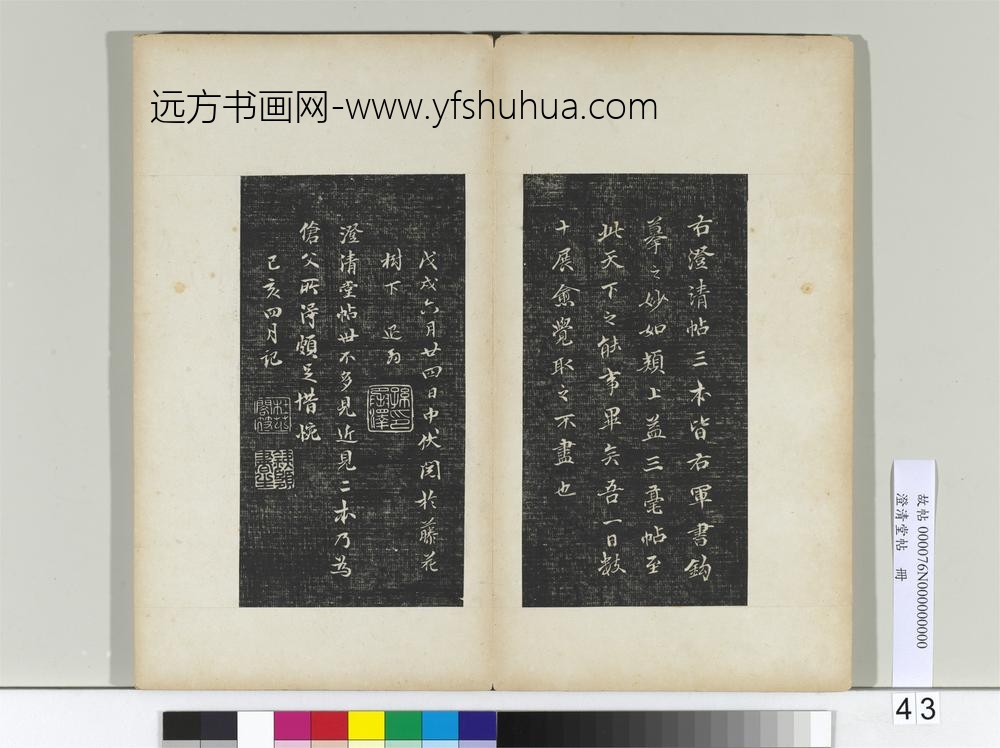 远方书画网-www.yfshuhua.com
右澄清帖三本皆右軍書鈎
摹之妙如頰上益三毫帖至
此天下之能事畢矣吾一日數
十展愈覺取之不盡也
戊戌六月廿四日中伏閱於藤花
樹下 退翁
孫印承澤
澄清堂帖世不多見近見二本乃爲
傖父所淂頗足惜惋
己亥四月記
故帖 000076N000000000
澄清堂帖 冊
43